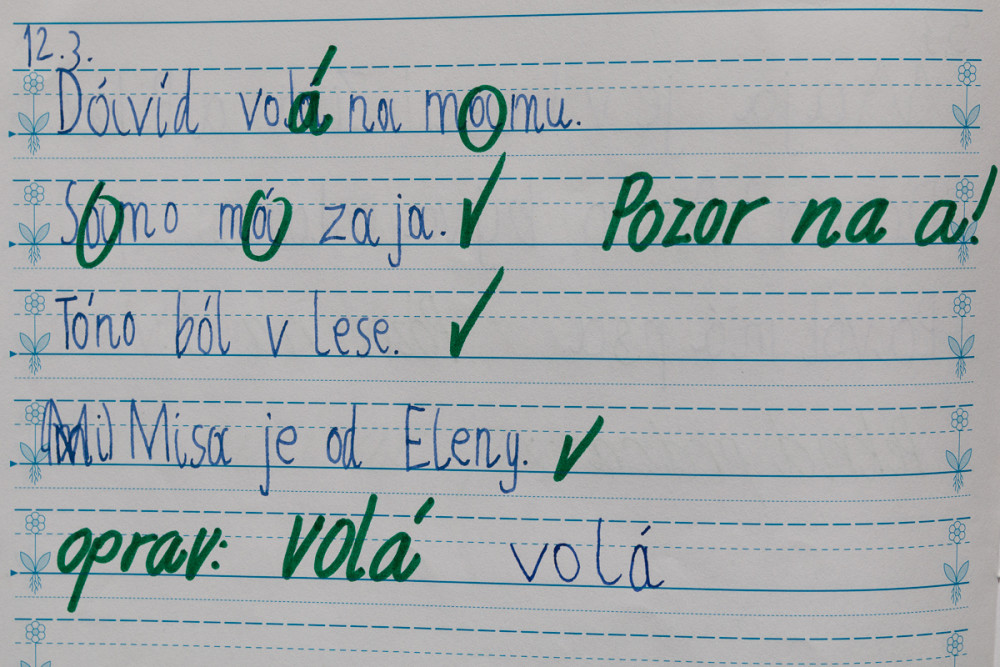 12.3.
Dávid volá na mamu.
Samo má zaja. Pozor na a!
Tóno ból v lese.
(Mi) Misa je od Eleny.
oprav: volá volá